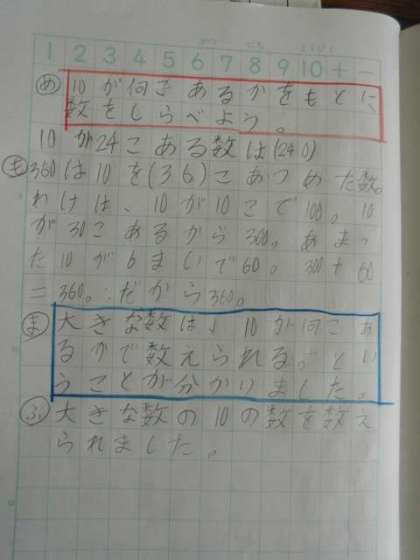 1 2 3 4 5 6 7 8 9 10 + -
め 10が何こあるかをもとに、
数をしらべよう。
10が24こある数は(240)
も 360は10を(36)こあつめた数。
わけは、10が10こで100。10
が30こあるから300。あまっ
た10が6まいで60。300+60
=360。だから360。
ま 大きな数は、10が何こあ
るかで数えられる。とい
うことが分かりました。
ふ 大きな数の10の数を数え
られました。